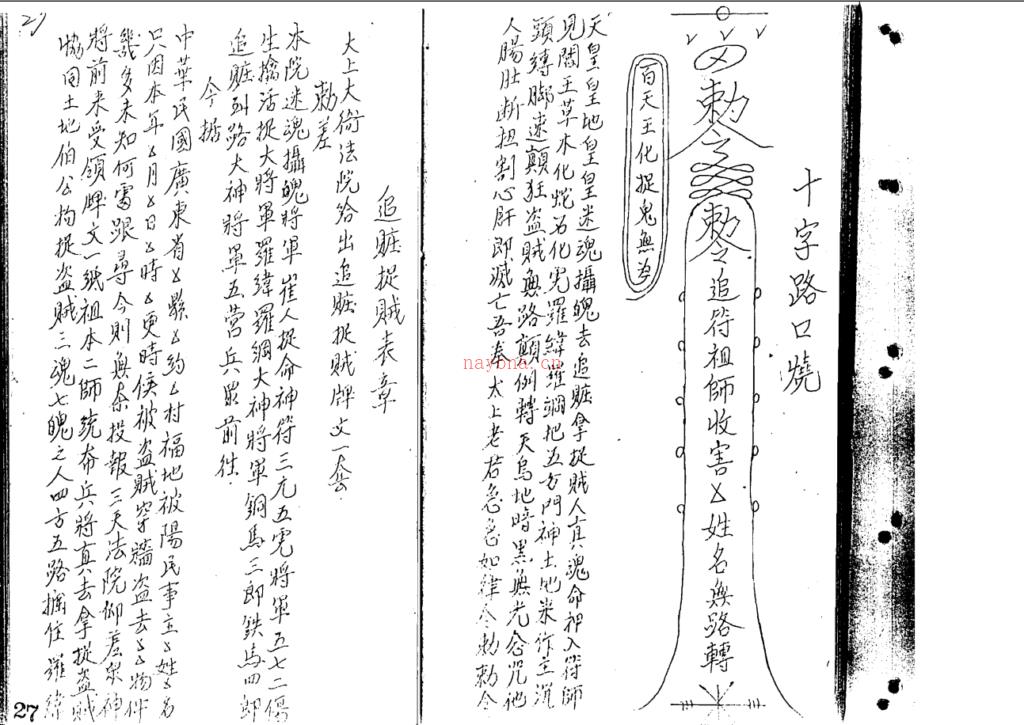 十字路口燒
敕令
敕令追符祖師收害厶姓名無路轉
百天王化捉鬼無為
天皇皇地皇皇迷魂攝魄去追賍拿捉賊人真魂命押入符師
見閻王草木化蛇石化虎羅緯羅綱把五方門神土地來作主沉
頭縛脚速顛狂盜賊無路顛倒轉天烏地暗黑無光念咒祂
人腸肚斷扭割心肝即滅亡吾奉太上老君急急如律令敕敕令
追賍捉賊表章
大上大倚法院給出追賍捉賊牌文一套
勅差
本院迷魂攝魄將軍崔人捉命神符三元五虎將軍五七二傷
生擒活捉大將軍羅緯羅綱大神將軍銅馬三郎鉄馬四郎
追賍到路大神將軍五营兵眾前徃
今據
中華民國廣東省厶縣厶約厶村福地被陽民事主厶姓厶名
只因本年厶月厶日厶時厶更時候被盜賊穿牆盜去厶厶物件
幾多未知何處跟尋今則無奈投報三天法院仰差眾神
將前來受領牌文一紙祖本二師統布兵將真去拿捉盜賊
協同土地伯公拘捉盜賊三魂七魄之人四方五路攔住羅緯
27
naybna.cn